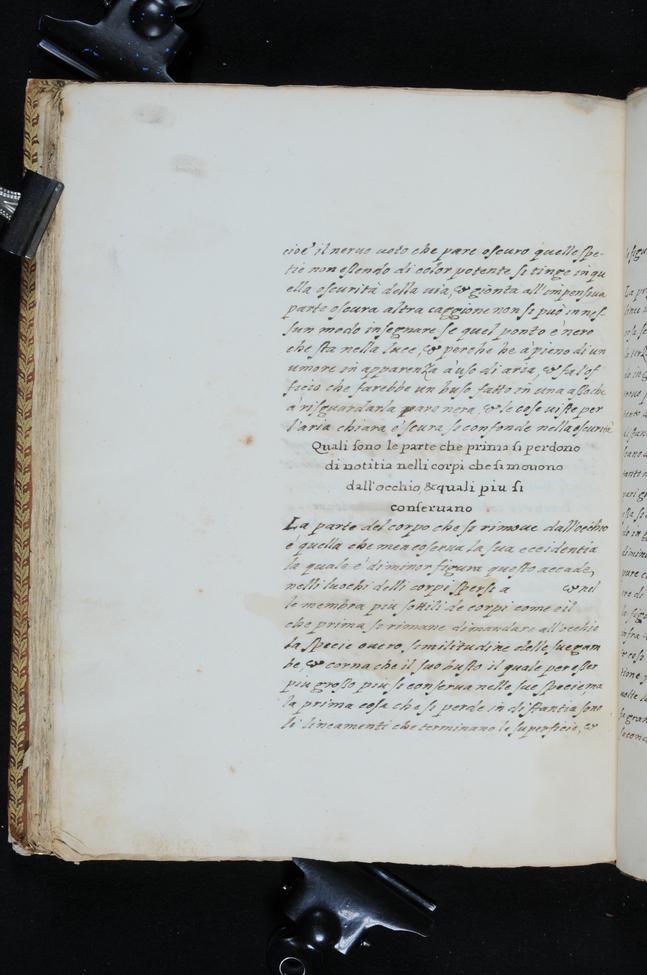 cioe' il neruo uoto che pare oscuro quelle spe-
tie non essendo di color potente si tinge in qu
ella oscurità della uia, & gionta all'impensiua
parte oscura altra caggione non se può in nes-
sun modo insegnare se quel ponto è nero
che sta nella luce, & perche he à pieno di un
umore in apparenza à uso di aria, & fa l'of
ficio che farebbe un buso fatto in una
à risguardarla pare nera, & le cose uiste per
l'aria chiara e scura se confonde nella oscurità
Quali sono le parte che prima si perdono
di notitia nelli corpi che si mouono
dall'occhio, & quali piu si
conseruano
La parte del corpo che se rimoue dall'occhio
è quella che men coserua la sua euidentia
la quale è di minor figura questo accade,
nelli luochi delli corpi spersi a & nel
le membra piu sottili de corpi come e il
che prima se rimane di mandare all'occhio
la specie ouero similitudine delle sue gam
be, & corna che il suo busto il quale per esser
piu grosso piu se conserua nelle sue specie ma
la prima cosa che se perde in distantia sono
li lineamenti che terminano le superficie, &